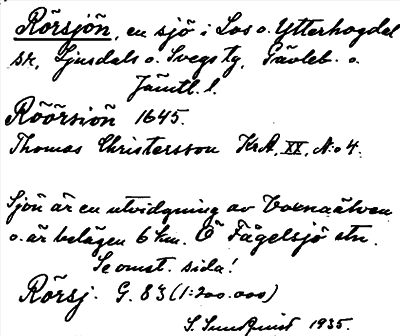 Rörsjön, en sjö i Los o. Ytterhogdal
sn, Ljusdals o. Svegs tg, Gävleb. o.
Jämtl. l.
Röörsioñ 1645.
Thomas Christersson KrA, XX, N:o 4.
Sjön är en utvidgning av Voxnaälven
o. är belägen 6 km. Ö Fågelsjö stn.
Se omst. sida!
Rörsj. G. 83 (1:200.000)
S. Sundquist 1935.